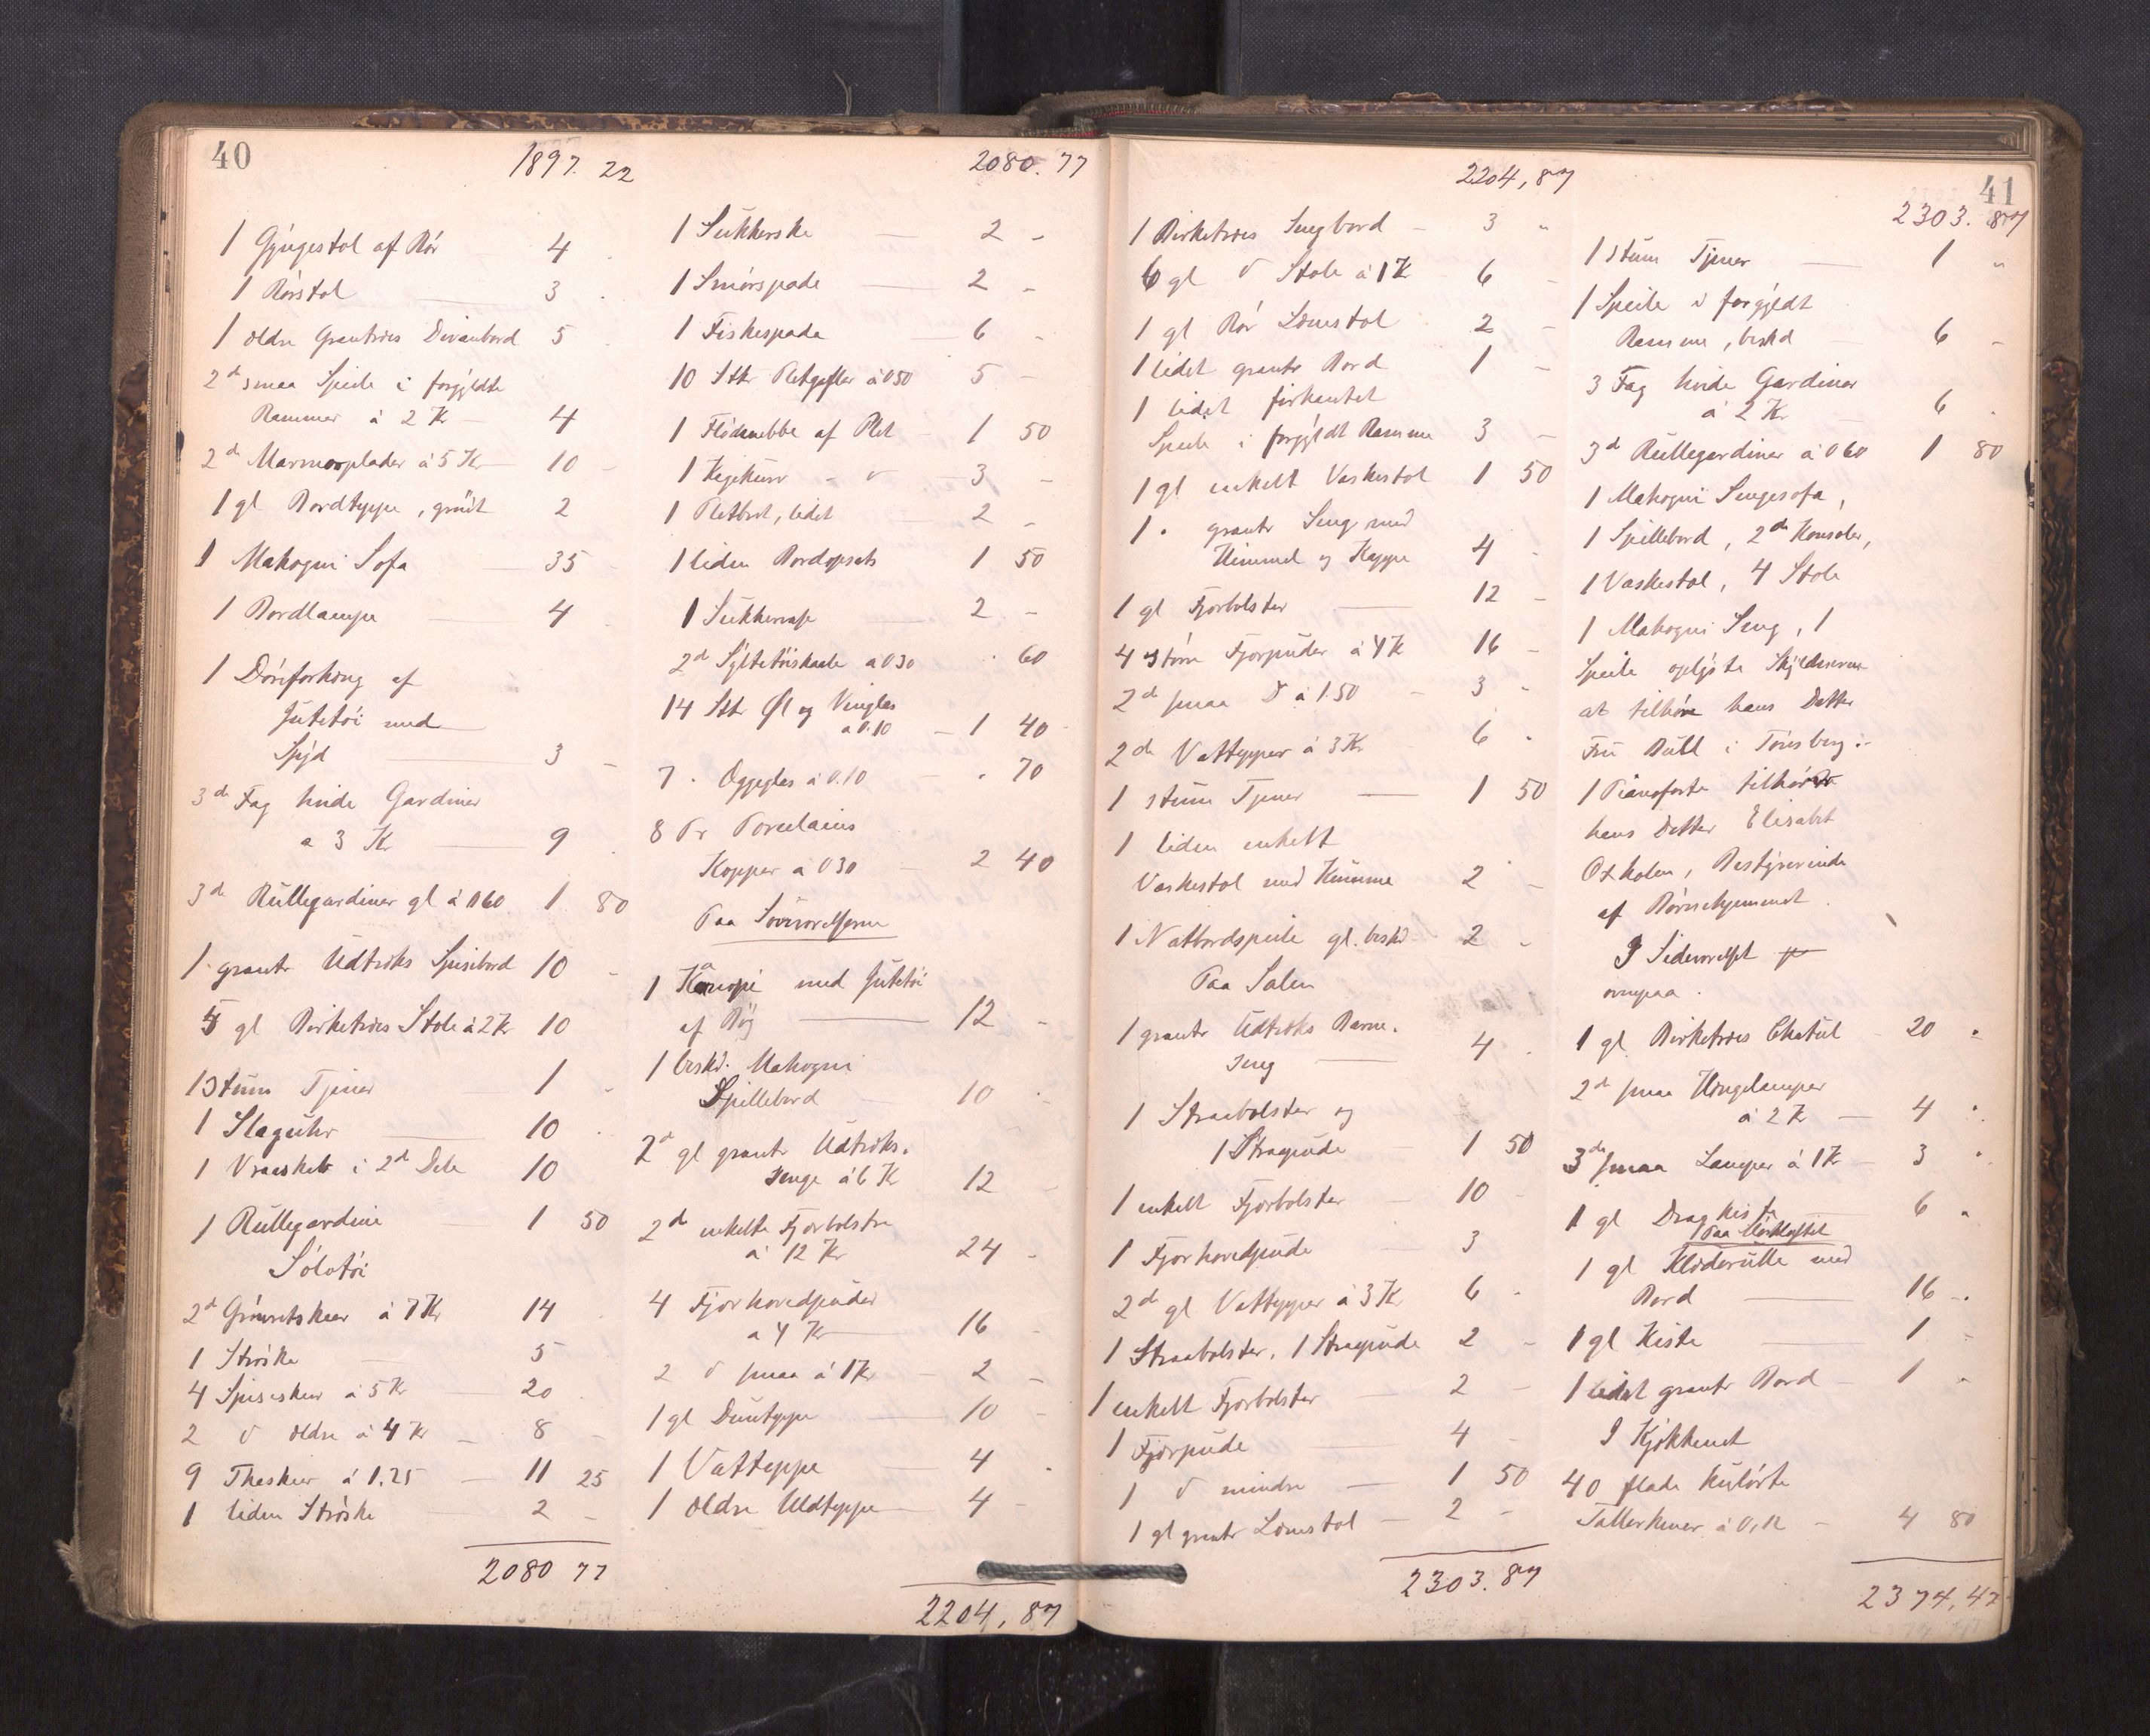 40
1897. 22
1 Gyngestol af Rör 4
1 Rörstol 3
1 ældre Grantræes Divanbord 5
2d smaa Speile i forgyldte
Rammer à 2 Kr 4
2de Marmorplader à 5 Kr 10 -
1 gl Bordteppe, grönt 2
1 Mahogni Sofa 35
1 Bordlampe 4
1 Dörforhæng af
Jutetöi med
Spyd 3 -
3de Fag hvide Gardiner
a 3 Kr 9
3de Rullegardiner gl à 0 60 1 80
1 grantr Udtræks Spisebord 10 -
5 gl Birketræes Stole à 2 Kr 10
1 Stum Tjener 1 -
1 Slaguhr 10
1 Vraeskab i 2de Dele 10
1 Rullegardin 1 50
Sölvtöi
2de Grönsetskeer à 7 Kr 14
1 Ströske 5
4 Spiseskeer à 5 Kr 20
2 d ældre à 4 Kr 8 -
9 Theskeer à 1.25 11 25
1 liden Ströske 2 -
2080 77
2080. 77
1 Sukkerske 2 -
1 Smörspade 2 -
1 Fiskespade 6 -
10 Stk Pletgafler à 0 50 5 -
1 Flödenebbe af Plet 1 50
1 Kagekurv - d 3 -
1 Pletbret, lidet 2 -
1 liden Bordopsats 1 50
1 Sukkervase 2 -
2de Syltetöiskaale a 0 30 . 60
14 Stk Øl og Vinglas
a 0.10 1 40
7 . Æggeglas à 0.10 . 70
8 Pr Porcelains
Kopper a 0 30 2 40
Paa Soveværelserne
1 Kanape med Jutetöi
af Ryg 12 -
1 beskd. Mahogni
Spillebord 10 -
2de gl grantr Udtræks.
senge à 6 Kr 12 -
2de enkelte Fjærbolstre
à 12 Kr 24 -
4 Fjærhovedpuder
a 4 Kr 16 -
2 d smaa à 1 Kr 2 -
1 gl Dunteppe 10 -
1 Vatteppe 4 .
1 ældre Uldteppe 4 -
2204, 87
2204, 87
1 Birketræes Sengbord 3 "
6 gl d Stole à 1 Kr 6 -
1 gl Rör Lænestol 2 -
1 lidet grantr Bord 1 -
1 lidet firkantet
Speile i forgyldt Ramme 3 -
1 gl enkelt Vaskestol 1 50
1 . grantr Seng med
Himmel og Kappe 4 -
1 gl Fjærbolster 12 -
4 större Fjærpuder à 4 Kr 16 -
2de smaa D à 1.50 3 -
2de Vattepper à 3 Kr 6 "
1 stum Tjener 1 50
1 liden enkelt
Vaskestol med Kumme 2 -
1 Natbordspeile gl. beskd 2 -
Paa Salen
1 grantr Udtræks Barne.
seng 4 -
1 Straabolster og
1 Straapude 1 50
1 enkelt Fjærbolster 10 -
1 Fjærhovedpude 3
2de gl Vattepper à 3 Kr 6 -
1 Straabolster. 1 Straapude 2 -
1 enkelt Fjærbolster 2 -
1 Fjærpude 4 -
1 d mindre 1 50
1 gl grantr Lænestol 2 -
2303. 87
41
2303. 87
1 stum Tjener 1 "
1 Speile i forgyldt
Ramme, beskd 6 -
3 Fag hvide Gardiner
à 2 Kr 6 .
3de Rullegardiner à 0 60 1 80
1 Mahogni Sengesofa,
1 Spillebord, 2de Konsoler,
1 Vaskestol, 4 Stole
1 Mahogni Seng, 1
Speile oplyste Skyldneren
at tilhöre hans Datter
Fru Bull i Tönsberg.-
1 Pianoforte tilhörer
hans Datter Elisabet
Oxholm, Bestyrerinde
af Börnehjemmet.
I Sideværelset
ovenpaa.
1 gl Birketræes Chatul 20 "
2de smaa Hængelamper
à 2 Kr 4 "
3de smaa Lamper à 1 Kr 3 "
1 gl Dragkiste 6 "
Paa Mörkloftet
1 gl Klæderulle med
Bord 16 -
1 gl Kiste 1 -
1 lidet grantr Bord 1 "
I Kjökkenet
40 flade kulörte
Tallerkener à 0,12 4 80
2374,47